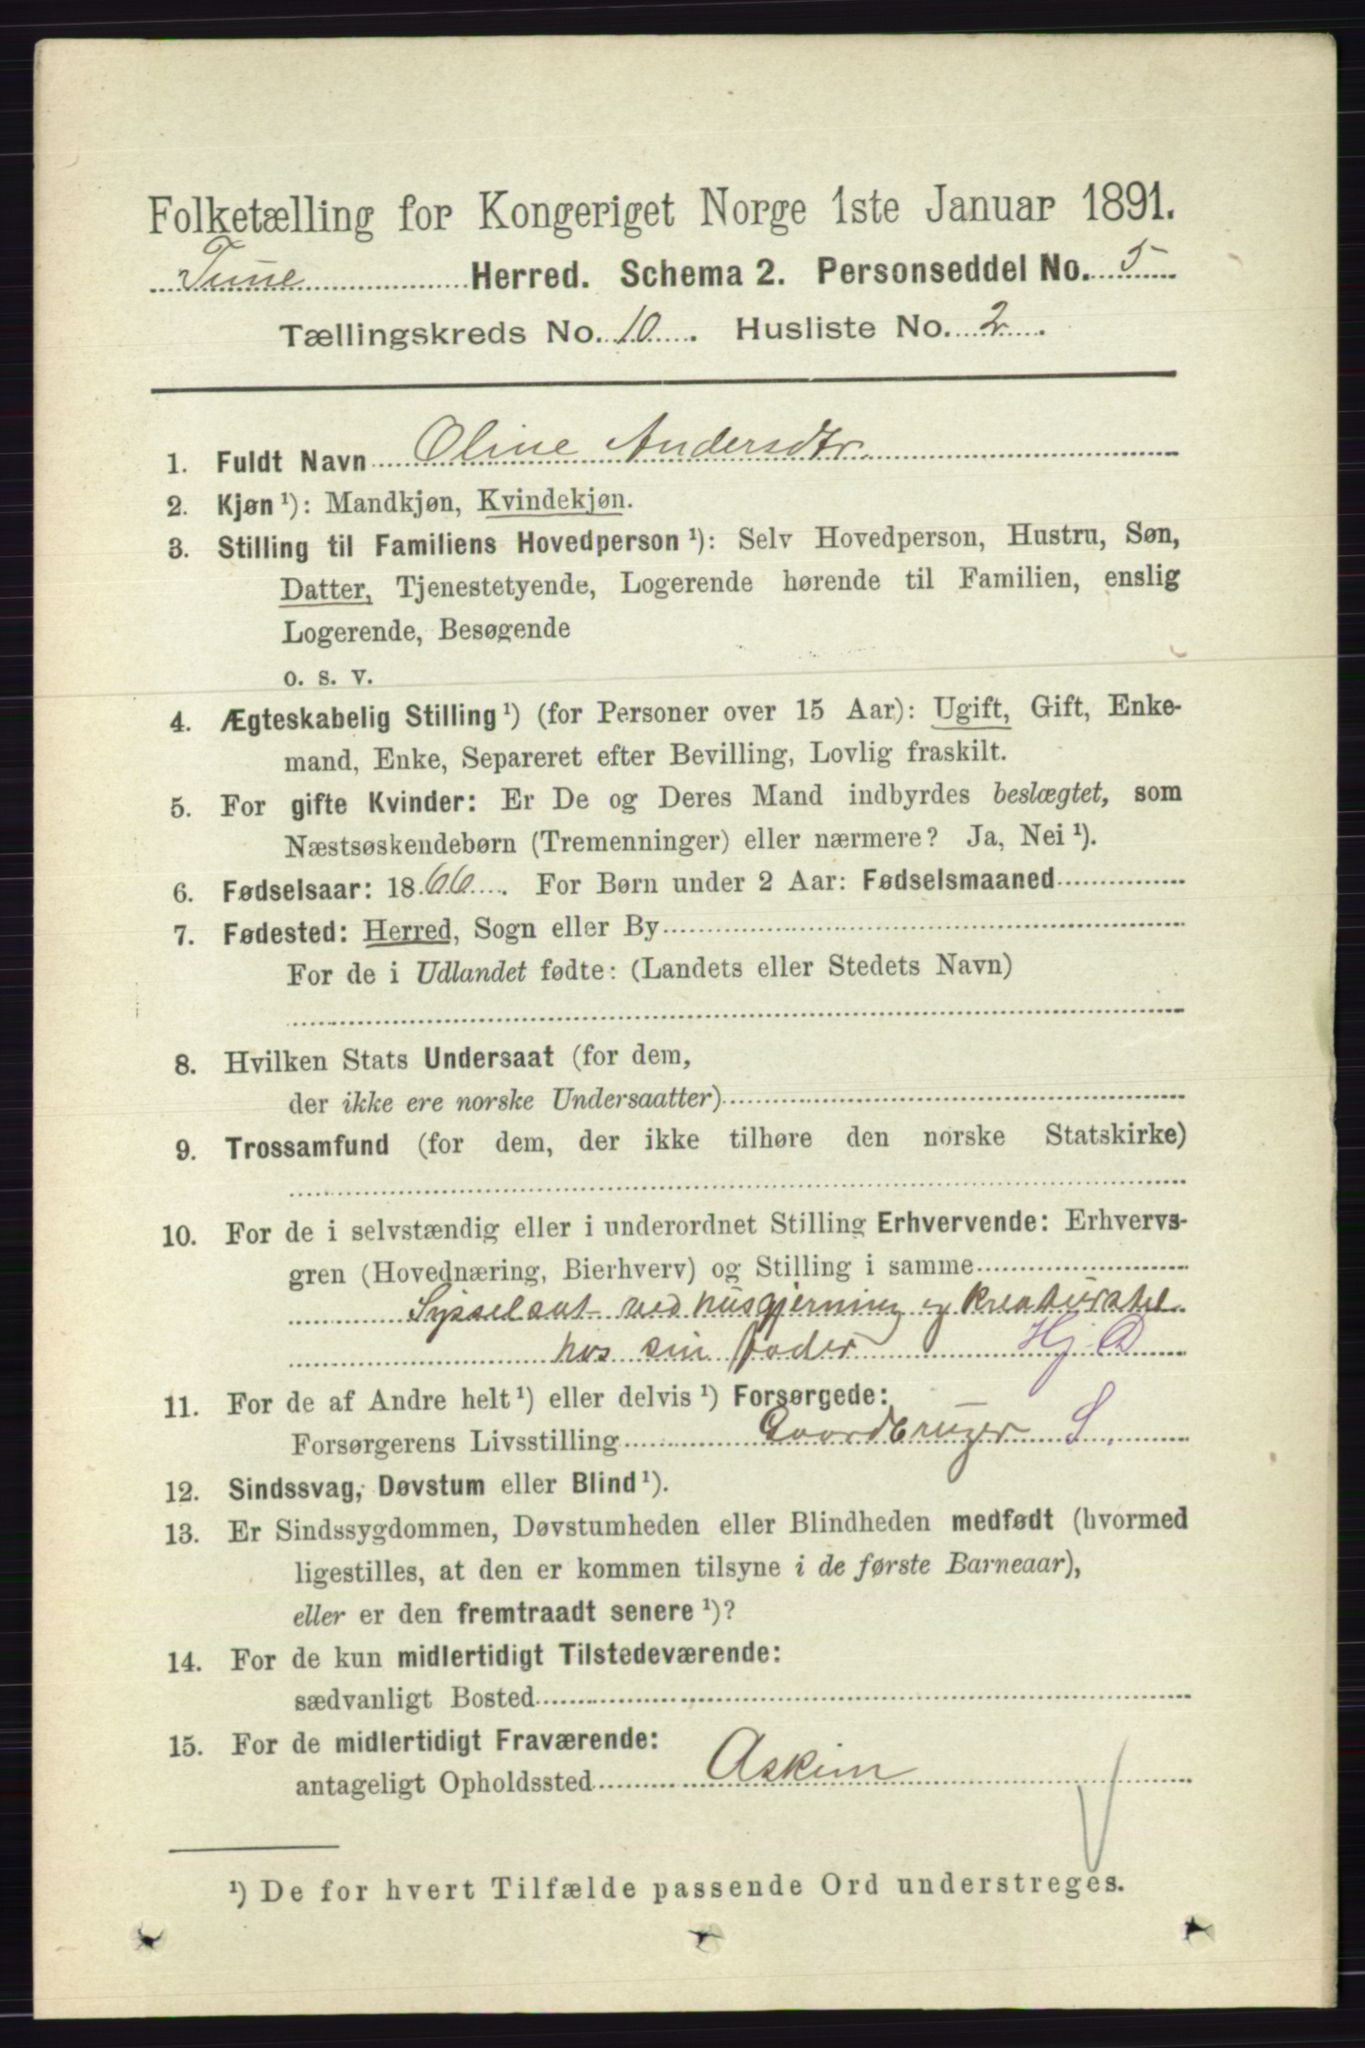 Folketælling for Kongeriget Norge 1ste Januar 1891.
Tune Herred. Schema 2. Personseddel No. 5
Tællingskreds No. 10. Husliste No. 2.
1. Fuldt Navn Oline Andersdtr.
2. Kjøn¹): Mandkjøn, Kvindekjøn.
3. Stilling til Familiens Hovedperson¹): Selv Hovedperson, Hustru, Søn,
Datter, Tjenestetyende, Logerende hørende til Familien, enslig
Logerende, Besøgende
o. s. v.
4. Ægteskabelig Stilling¹) (for Personer over 15 Aar): Ugift, Gift, Enke-
mand, Enke, Separeret efter Bevilling, Lovlig fraskilt.
5. For gifte Kvinder: Er De og Deres Mand indbyrdes beslægtet, som
Næstsøskendebørn (Tremenninger) eller nærmere? Ja, Nei¹).
6. Fødselsaar: 1866. For Børn under 2 Aar: Fødselsmaaned
7. Fødested: Herred, Sogn eller By
For de i Udlandet fødte: (Landets eller Stedets Navn)
8. Hvilken Stats Undersaat (for dem,
der ikke ere norske Undersaatter)
9. Trossamfund (for dem, der ikke tilhøre den norske Statskirke)
10. For de i selvstændig eller i underordnet Stilling Erhvervende: Erhvervs-
gren (Hovednæring, Bierhverv) og Stilling i samme
Sysselsat ved husgjerning og kreaturstel
hos sin fader Hj. D
11. For de af Andre helt¹) eller delvis¹) Forsørgede:
Forsørgerens Livsstilling Gaardbruger S.
12. Sindssvag, Døvstum eller Blind¹).
13. Er Sindssygdommen, Døvstumheden eller Blindheden medfødt (hvormed
ligestilles, at den er kommen tilsyne i de første Barneaar),
eller er den fremtraadt senere¹)?
14. For de kun midlertidigt Tilstedeværende:
sædvanligt Bosted
15. For de midlertidigt Fraværende:
antageligt Opholdssted Askim
¹) De for hvert Tilfælde passende Ord understreges.